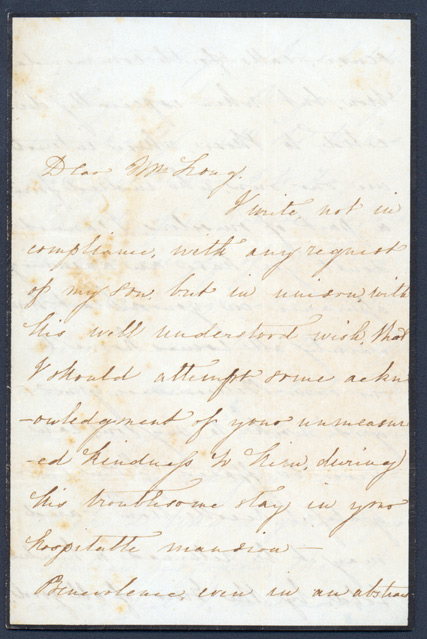 Dear Mrs Long.
I write, not in
compliance, with any request
of my son, but in unison, with
his well understood wish, that
I should attempt some ackn
-owledgment of your unmeasur
-ed kindness to him, during
his troublesome stay in your
hospitable mansion —
Benevolence, even in an abstrac